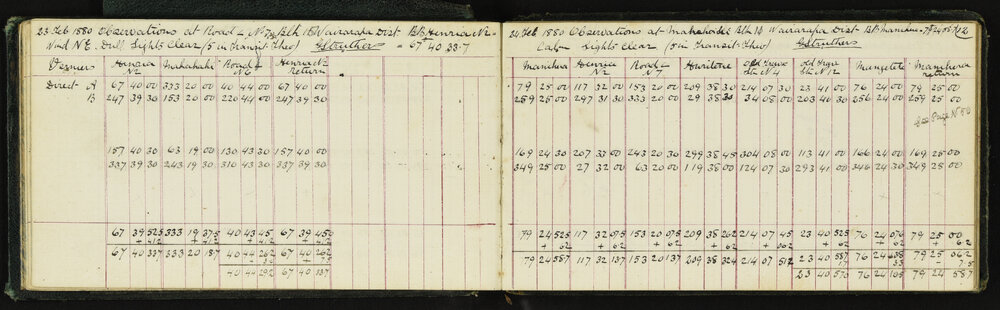 23 Feb 1880 Observations at Road No 7 Blk 1B Wairarapa Dist
Wind NE. Dull Lights Clear (5 in Transit Theo) Struthers = 67° 40 33.7
No 2 Mahakahi Road No 6 No 2 Return
Direct A 67 40 00 333 20 00 40 44 00 67 40 00
B 247 39 30 153 20 00 220 44 00 247 39 30
157 40 30 63 19 00 130 43 30 157 40 30
337 39 30 243 19 30 310 43 30 337 39 30
67 39 52.5 333 19 37.5 40 43 45 67 39 45.0
+ 41.2 + 41.2 + 41.2 + 41.2
67 40 33.7 333 20 18.7 40 44 26.2 67 40 26.2
40 44 29.2 67 40 13.7
24 Feb 1880 Observations at Mahakahi Blk 1B Wairarapa Dist
Calm Lights Clear (5 in Transit Theo) Struthers
Manihera No 2 Road No 7 Old Trig Stn No 4 Old Trig Stn No 12 Mangetete Manihera return
79 25 00 117 32 00 153 20 00 209 38 30 214 07 30 23 41 00 76 24 00 79 25 00
259 25 00 297 31 30 333 20 00 29 38 30 34 08 00 203 40 30 256 24 00 259 25 00
See Page
169 24 30 207 33 00 243 20 30 299 38 45 304 08 00 113 41 00 166 24 00 169 25 00
349 25 00 27 32 00 63 20 00 119 38 00 124 07 30 293 41 00 346 24 30 349 25 00
79 24 52.5 117 32 07.5 153 20 07.5 209 38 26.2 214 07 45 23 40 52.5 76 24 07.6 79 25 00
+ 6.2 + 6.2 + 6.2 + 6.2 + 6.2 + 6.2 + 6.2
79 24 58.7 117 32 13.7 153 20 13.7 209 38 32.4 214 07 51.2 23 40 58.7 79 25 06.2
7.5
23 40 57.0 76 24 10.5 79 24 58.7